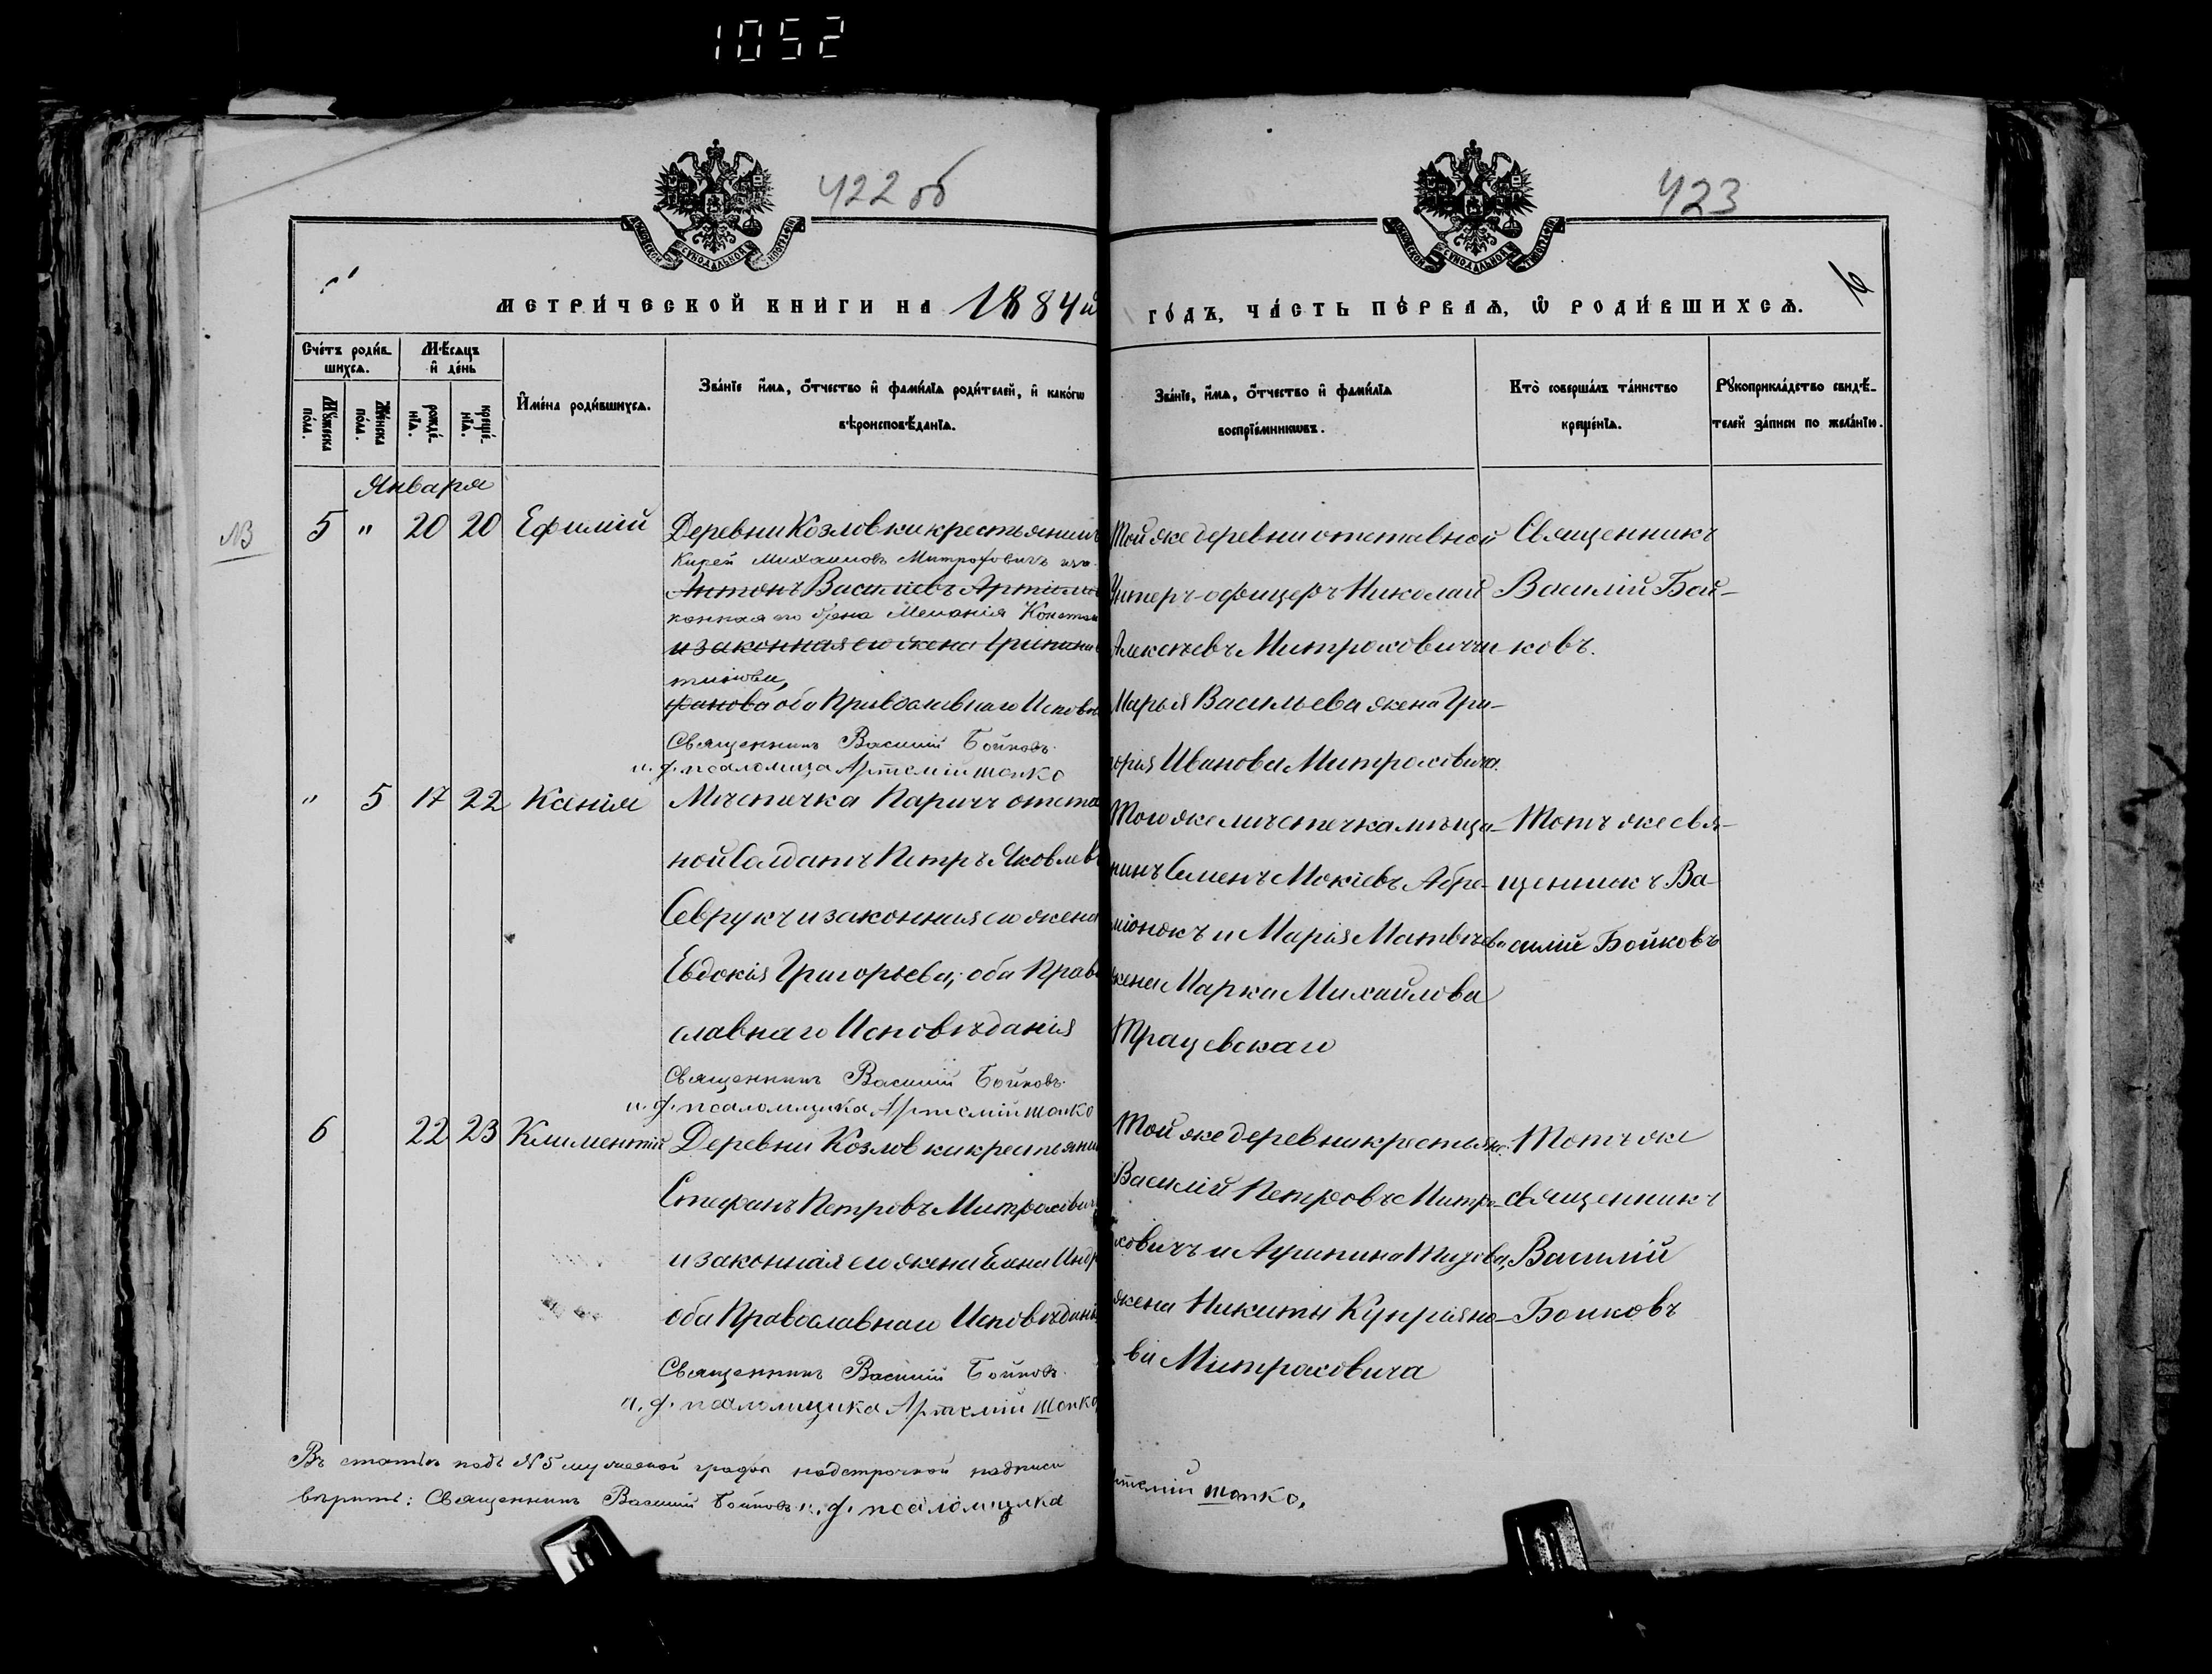 1052
422 об
423
МЕТРИ́ЧЕСКОЙ КНИ́ГИ НА 1884й
ГО́ДЪ, ЧА́СТЬ ПЕ́РВАѦ, Ѡ҆ РОДИ́ВШИХСѦ.
Сче́тъ роди́в-
шихсѧ.
Мѣ́сѧцъ
и҆ де́нь
Мꙋ́жеска по́ла.
Же́нска по́ла.
рожде́-нїѧ.
креще́-нїѧ.
И҆мена̀ роди́вшихсѧ.
Зва́нїе и҆́мѧ, ѻ҆́тчество и҆ фами́лїѧ роди́телей, и҆ како́гѡ
вѣроисповѣ́данїѧ.
Зва́нїе, и҆́мѧ, ѻ҆́тчество и҆ фами́лїѧ
воспрїе́мникѡвъ.
Кто̀ соверша́лъ та́инство
креще́нїѧ.
Рꙋкоприкла́дство свидѣ́-
телей за́писи по жела́нїю.
Января
NB
5 " 20 20 Ефимій
Деревни Козловки крестьянинъ
Кирей Михаиловъ Митрофовичъ иза-
Антонъ Василіевъ Артіомо
конная его жена Меланія Констан
и законная его жена Гритини
тинова,
фанова оба Православнаго Исповѣ
Священникъ Василій Бойковъ.
и. д. псаломщика Артемій Шопко
Той же деревни отставной
Унтеръ-офицеръ Николай
Алексѣевъ Митроховичъ и
Марья Васильева жена Гри-
горія Иванова Митроховича.
Священникъ
Василій Бой-
ковъ.
" 5 17 22 Ксенія
Мѣстечка Паричъ отста
ной Солдатъ Петръ Яковлевъ
Севрукъ и законная его жена
Евдокія Григорьева; оба Право
славнаго Исповѣданія
Священникъ Василій Бойковъ.
и. д. псаломщика Артемій Шопко
Того же мѣстечка мѣща-
нинъ Семенъ Мокіевъ Абра-
міонокъ и Марія Матвѣева
жена Марка Михайлова
Трацевскаго
Тотъ же свя-
щенникъ Ва-
силій Бойковъ
6 22 23 Климентій
Деревни Козловки крестьянин
Стефанъ Петровъ Митрохович
и законная его жена Елена Андр
оба Православнаго Исповѣдані
Священникъ Василій Бойковъ.
и. д. псаломщика Артемій Шопко
Той же деревни крестьян.
Василій Петровъ Митро-
ховичъ и Агрипина
жена Никиты Купріяно-
ва Митроховича
Тотъ же
священникъ
Василій
Бойковъ
Въ статьѣ подъ N 5 мужеской графы надстрочной надписи
вѣрить: Священникъ Василій Бойковъ и. д. псаломщика
ртемій Шопко,